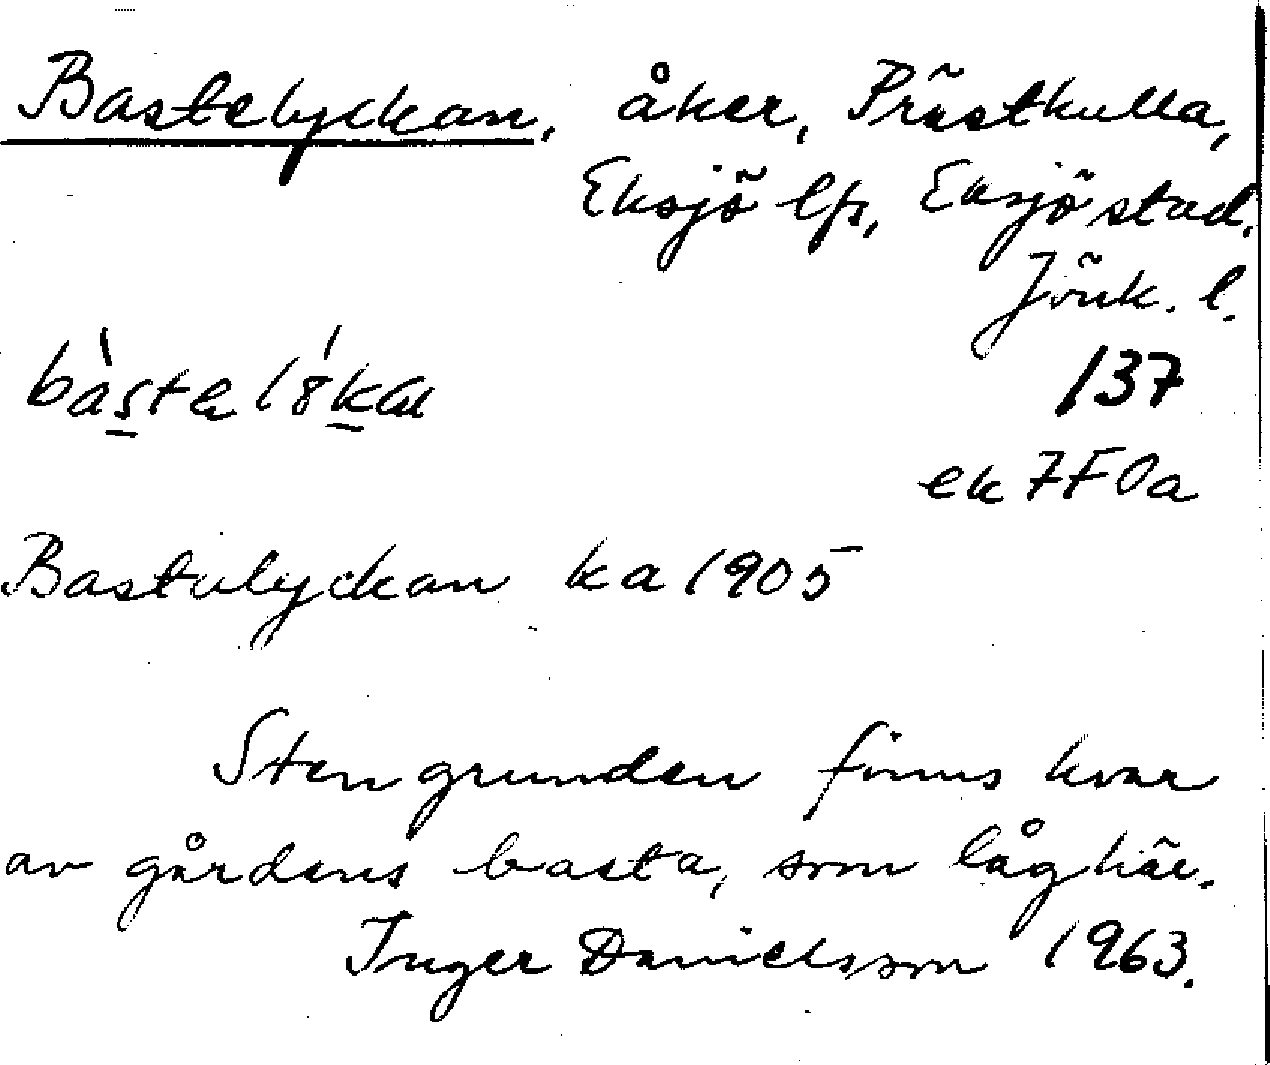 Bastelyckan, åker, Prästkulla,
Eksjö lfs, Eksjö stad,
Jönk. l.
137
ek 7F0a
Bastulyckan ka 1905
Stengrunden finns kvar
av gårdens basta, som låg här.
Inger Danielsson 1963.